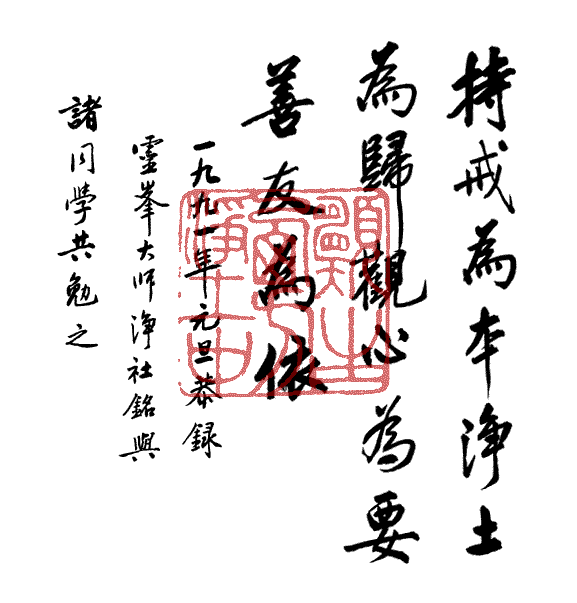 持戒為本淨土
為歸觀心為要
善友為依
一九九一年元旦恭録
靈峯大师淨社銘與
諸同學共勉之